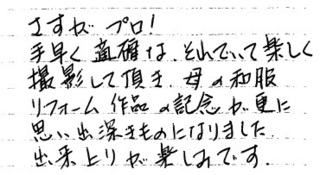 さすが プロ!
手早く 適確な、それでいて楽しく
撮影して頂き、母の和服
リフォーム 作品の記念が更に
思い出深きものになりました.
出来上りが楽しみです.